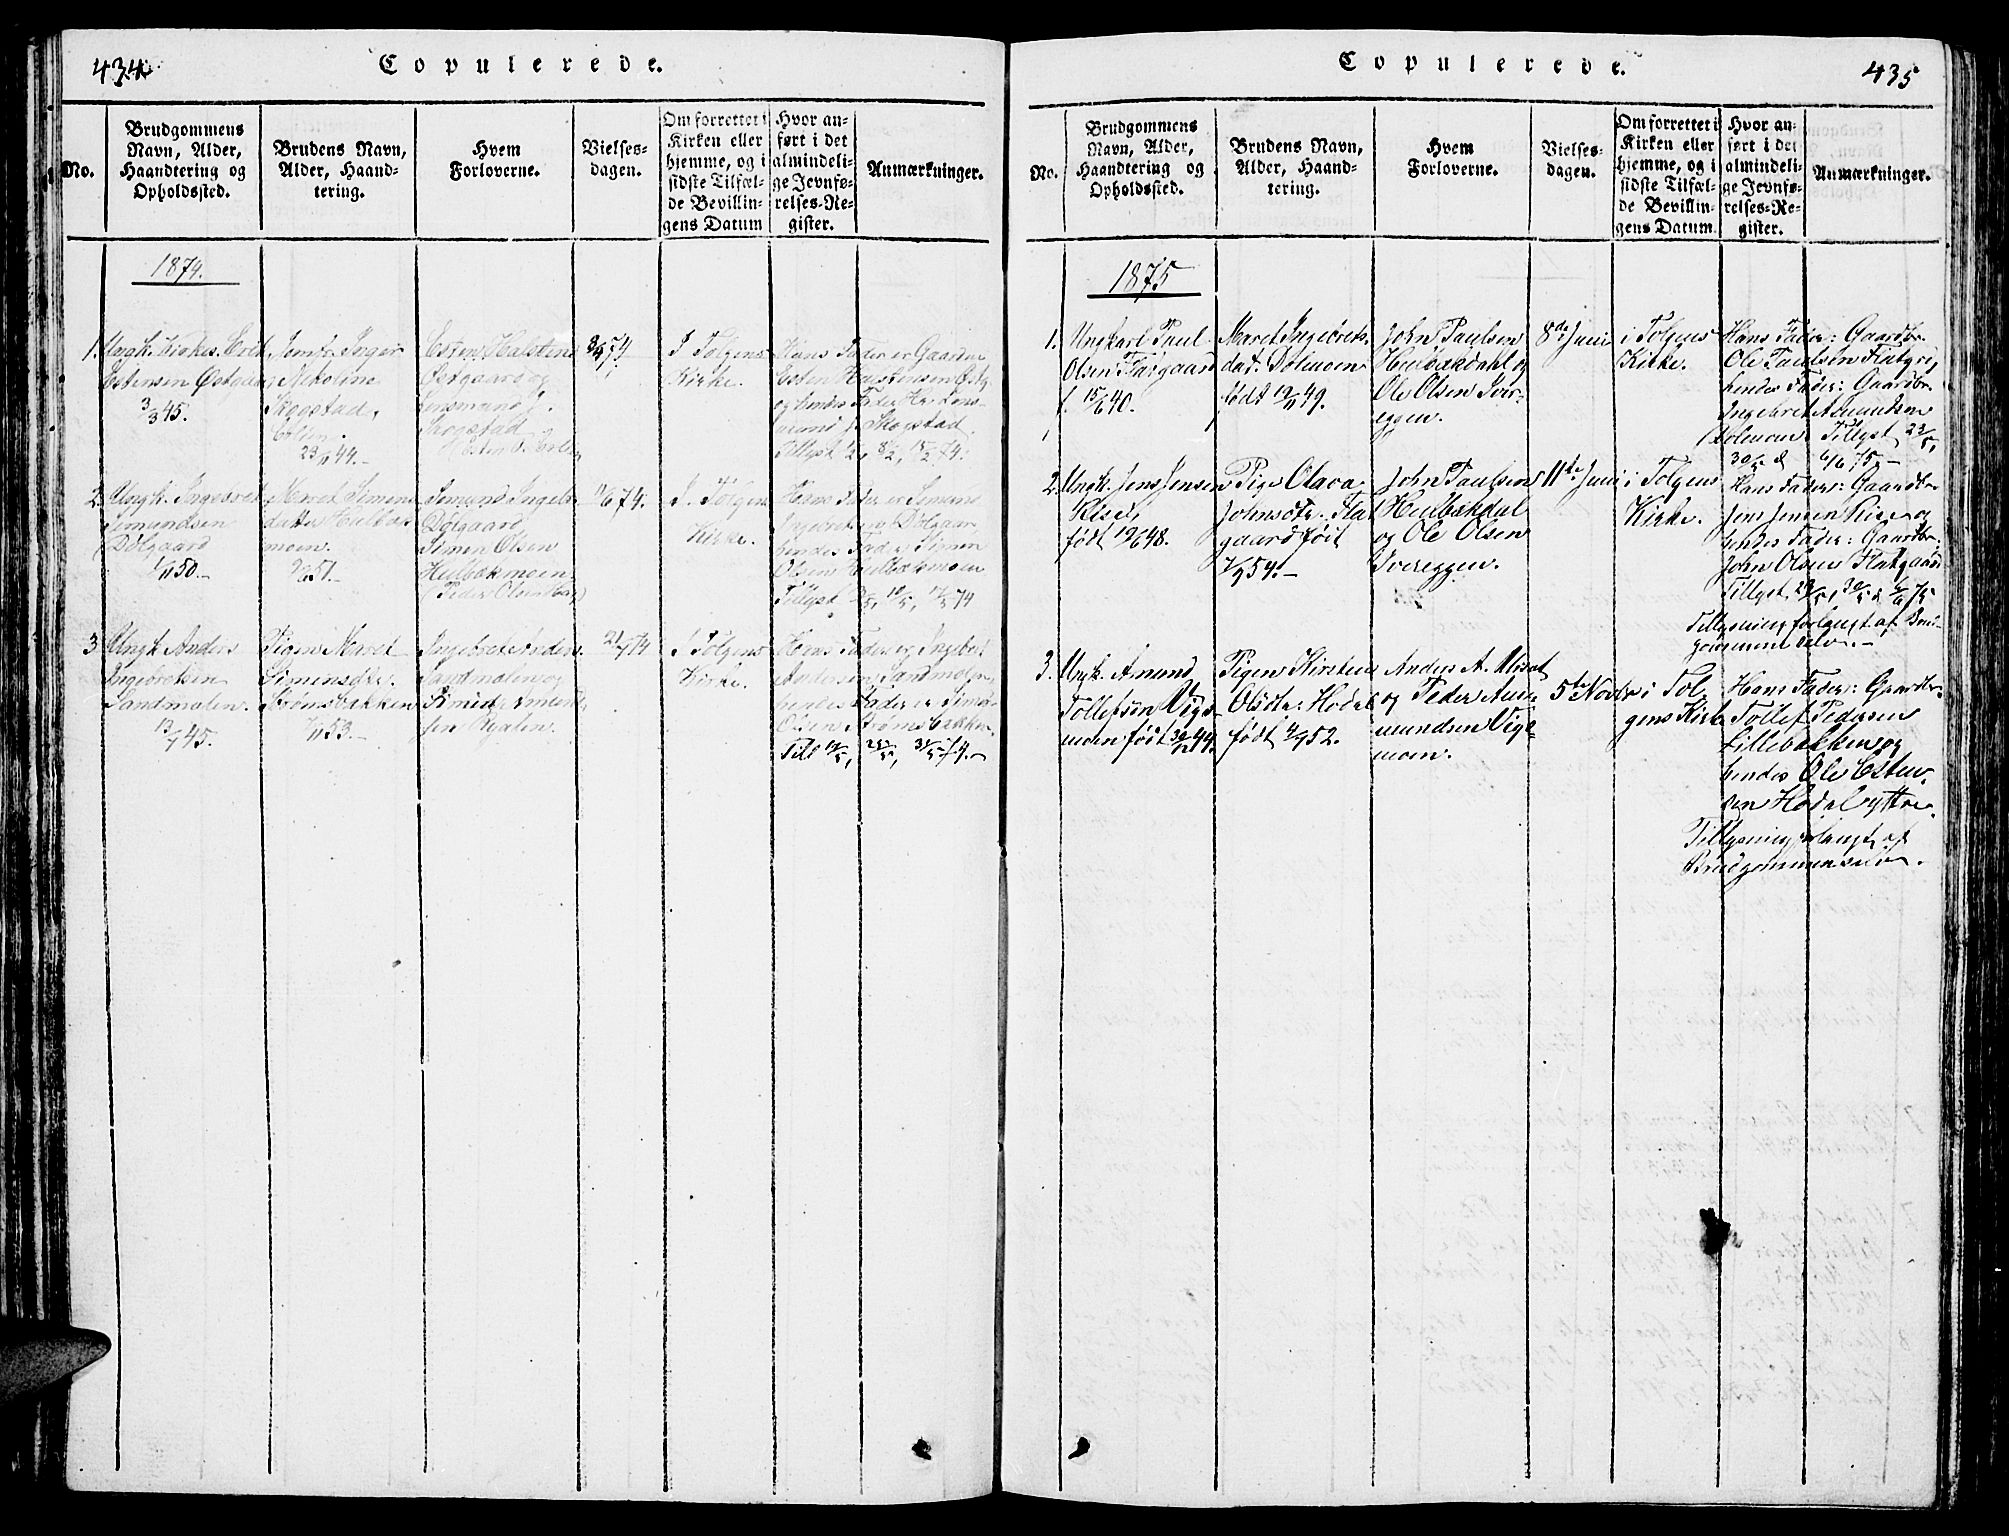 434.
Copulerede.
No.
Brudgommens
Navn, Alder,
Haandtering og
Opholdssted.
Brudens Navn,
Alder, Haand-
tering.
Hvem
Forloverne.
Vielses-
dagen.
Om forrettet i
Kirken eller
hjemme, og i
sidste Tilfæl-
de Bevillin-
gens Datum
Hvor an-
ført i det
almindeli-
ge Jevnfø-
relses-Re-
gister.
Anmærkninger.
1874.
1.
Estensen Østgaard
3/3 45.
Jomfr Inger
Nikoline
Skogstad,
23/11 44.-
Esten Halstens
Østgaard og
Lensmand J.
Skogstad
I Tolgens
Kirke.
Hans Fader er Gaardm
Esten Halstensen Østg
og hendes Fader Hr Lens-
mand J. Skogstad.
Tillyst 1/2, 8/2, 15/2 74.
2.
Ungk. Ingebret
Simundsen
Dølgaard
50.-
Maret Simens
datter Hulbæk
moen.
51.-
Simund Ingebr
Dølgaard
Simen Olsen
Hulbækmoen
(Peder Olsen
/6 74.
I Tolgens
Kirke.
Hans Fader er Simund
Ingebretsen Dølgaar
hendes Fader Simen
Olsen Hulbækmoen
Tillyst 10/5, 17/5 74
3
Ungk Anders
Ingebretsen
Sandmælen.
13/7 45.
Pigen Maret
Simensdtr.
Strømsbakken
/11 53.-
Ingebret Anders.
Sandmælen og
Knud Amund
sen Nygalen.
I Tolgens
Kirke.
Hans Fader er Ingebret
Andersen Sandmælen,
hendes Fader er Simen
Olsen Strømsbakken.
Till 17/5, 25/5, 31/5 74.-
Copulerede.
435
No.
Brudgommens
Navn, Alder,
Haandtering og
Opholdssted.
Brudens Navn,
Alder, Haand-
tering.
Hvem
Forloverne.
Vielses-
dagen.
Om forrettet i
Kirken eller
hjemme, og i
sidste Tilfæl-
de Bevillin-
gens Datum.
Hvor an-
ført i det
almindeli-
ge Jevnfø-
relses-Re-
gister.
Anmærkninger.
1875
1.
Ungkarl Paul
Olsen Flatgaard
f. 15/6 40.
Maret Ingebrets.
dat. Dolmoen
født 12/11 49.
John Paulsen
Hulbækdahl og
Ole Olsen Sver-
eggen.
8de Juni
i Tolgens
Kirke.
Hans Fader: Gaardbr.
Ole Paulsen Flatg og
hendes Fader: Gaardbr.
Ingebret Amundsen
Dolmoen Tillyst 23/5,
30/5 & 6/6 75.-
2.
Ungk. Jens Jensen
Riise,
født 12/6 48.
Pige Olava
Johnsdtr. Flat
gaard født
7/9 54.-
John Paulsen
Hulbækdal
og Ole Olsen
Svereggen.
11te Juni
i Tolgens
Kirke.
Hans Fader: Gaardbr
Jens Jensen Riise og
hendes Fader: Gaardbr.
John Olsen Flatgaard
Tillyst 23/5, 30/5 & 6/6 75
Tillysning forlangt af Brud-
gommen selv.-
3.
Ungk. Amund
Tollefsen Vige-
moen født 30/12 44.
Pigen Kirsten
Olsdtr. Hodal
født 4/9 52.
Anders A.
og Peder Amu
mundsen Vige-
moen.
5te Novbr
i Tol
gens Kirke
Hans Fader: Gaardbr.
Tollef Pedersen
Lillebakken og
hendes Ole Esten
sen Hodal yttre.
Tillysning forlangt af
Brudgommen selv.